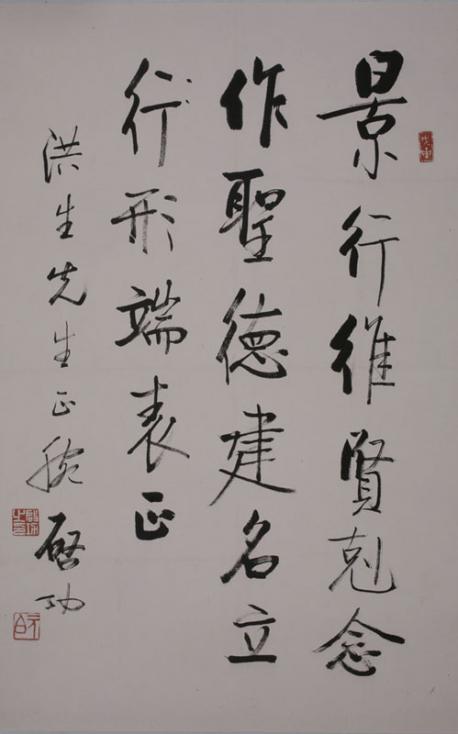 景行維賢剋念
作聖德建名立
行形端表正
洪生先生正 啓功